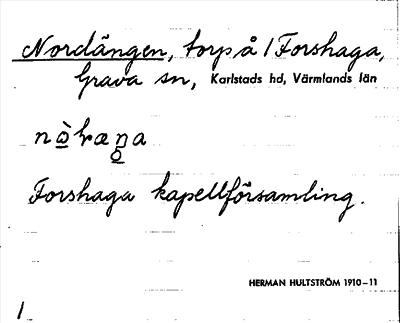 Nordängen, torp å 1 Forshaga,
Grava sn, Karlstads hd, Värmlands län
Forshaga kapellförsamling.
HERMAN HULTSTRÖM 1910–11
1